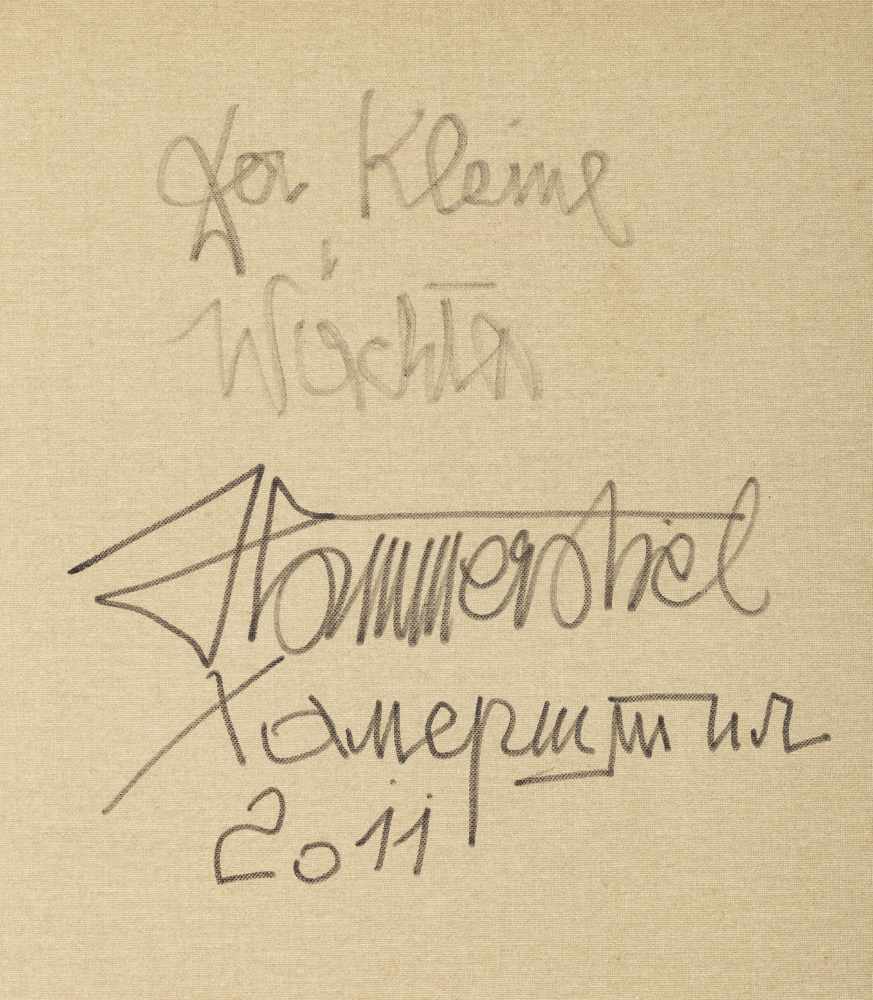 Der Kleine
Wächter
Hammerstiel
Хамерштил
2011